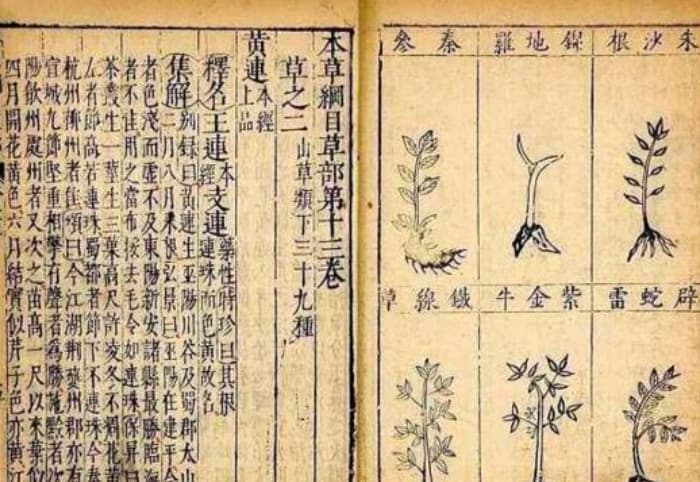 朱沙根
錦地羅
參
辟蛇雷
紫金牛
鐵線草
本草綱目草部第十三卷
草之二 山草類下三十九種
黃連 本經上品
釋名王連 本經 支連 藥性時珍曰其根
連珠而色黃故名
集解 別錄曰黃連生巫陽川谷及蜀郡太山
二月八月采根弘景曰巫陽在建平今
者色淺而虛不及東陽新安諸縣最勝臨海
者不佳用之當布按去毛令如連珠保昇曰
茶叢生一莖生三葉高尺許凌冬不凋花黃
左者節高若連珠蜀都者節下不連珠今秦
杭州柳州者佳頌曰今江湖荊夔州郡亦有
宣城九節堅重相擊有聲者為勝施黔者次
陽歙州處州者又次之苗高一尺以來葉似
四月開花黃色六月結實似芹子色亦黃江